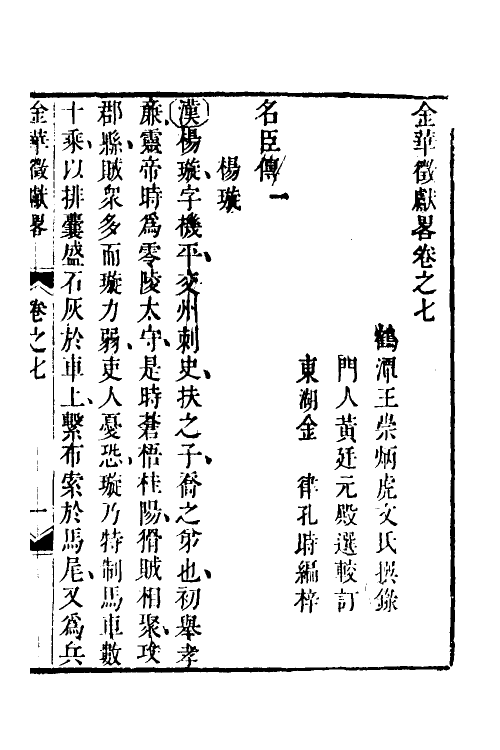 金華徵獻畧卷之七
鶴潭王崇炳虎文氏撰錄
門人黃廷元殿選較訂
東湖金　律孔時編梓
名臣傳一
楊璇
漢楊璇字機平交州刺史扶之子喬之弟也初舉孝
廉靈帝時為零陵太守是時蒼梧桂陽猾賊相聚攻
郡縣賊衆多而璇力弱吏人憂恐璇乃特制馬車數
十乘以排囊盛石灰於車上繫布索於馬尾又為兵
金華徵獻畧
卷之七
一